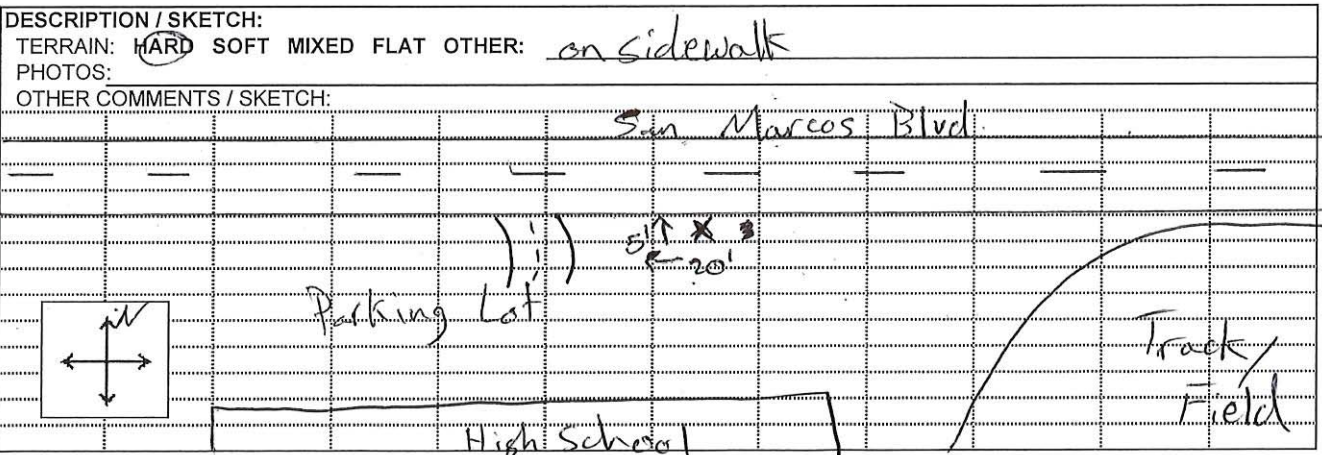 DESCRIPTION / SKETCH:
TERRAIN: HARD SOFT MIXED FLAT OTHER: on sidewalk
PHOTOS:
OTHER COMMENTS / SKETCH:
San Marcos Blvd.
5' X
20'
Parking Lot
N
Track/
Field
High School